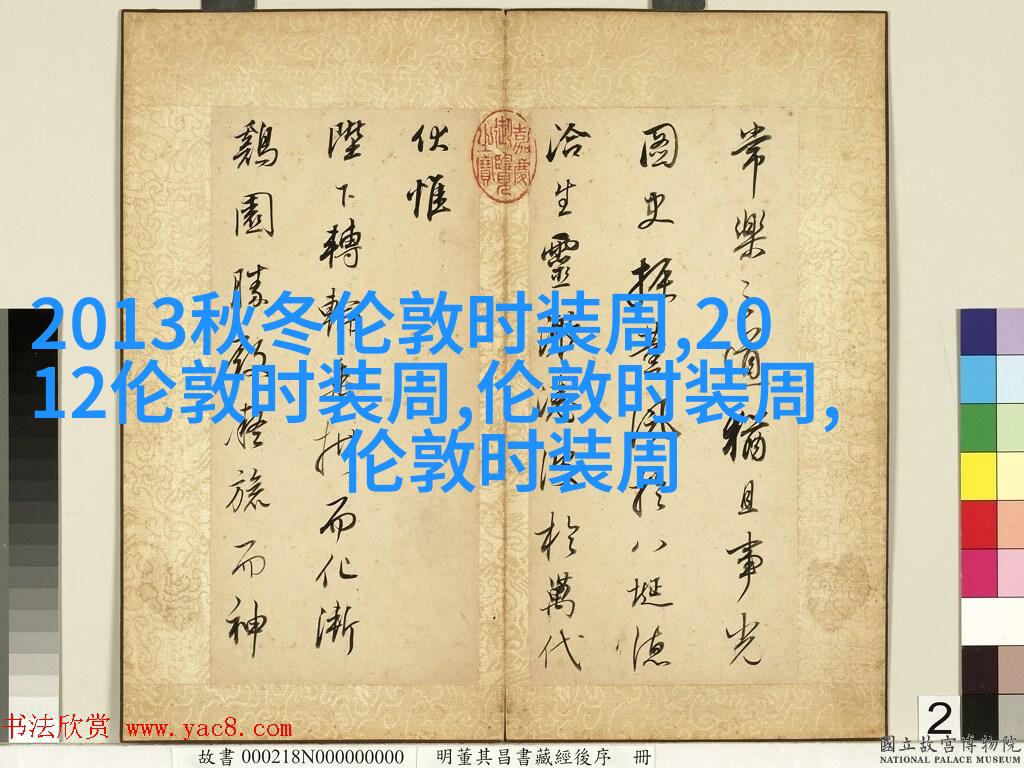 常樂之猶且事光
圖史振風於八埏德
洽生靈於萬代
伏惟
陛下轉輪垂拱而化漸
鷄園勝凝旒而神
嘉慶御覽之寶
2013秋冬伦敦时装周,20
12伦敦时装周,伦敦时装周,
伦敦时装周
书法欣赏 www.yac8.com
故書 000218N000000000 明董其昌書藏經後序 冊
2
國立故宮博物院
NATIONAL PALACE MUSEUM